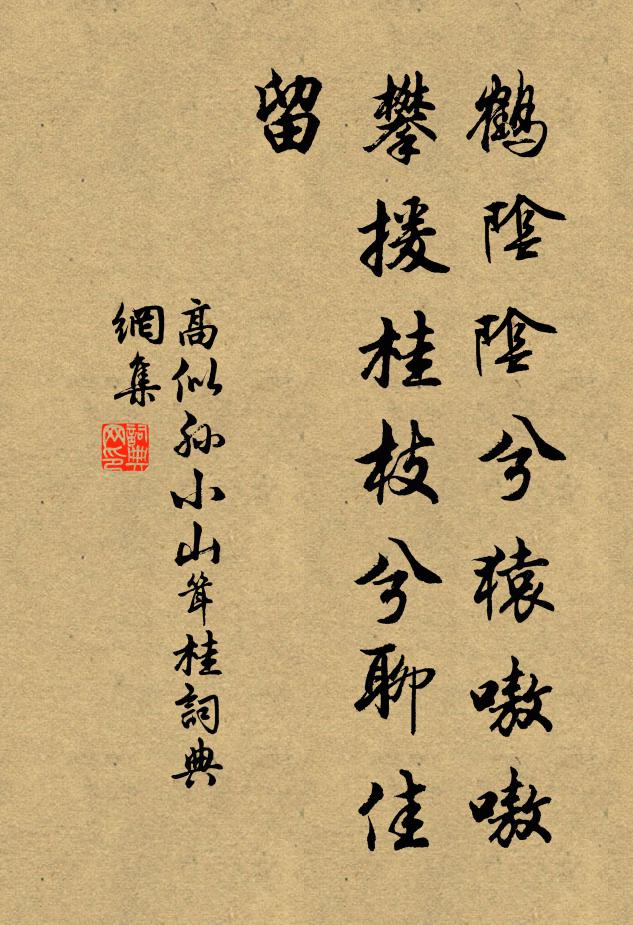 鶴陰陰兮猿嗷嗷
攀援桂枝兮聊佳
留
高似孙小山䕺桂詞典
網集
詞典
网印